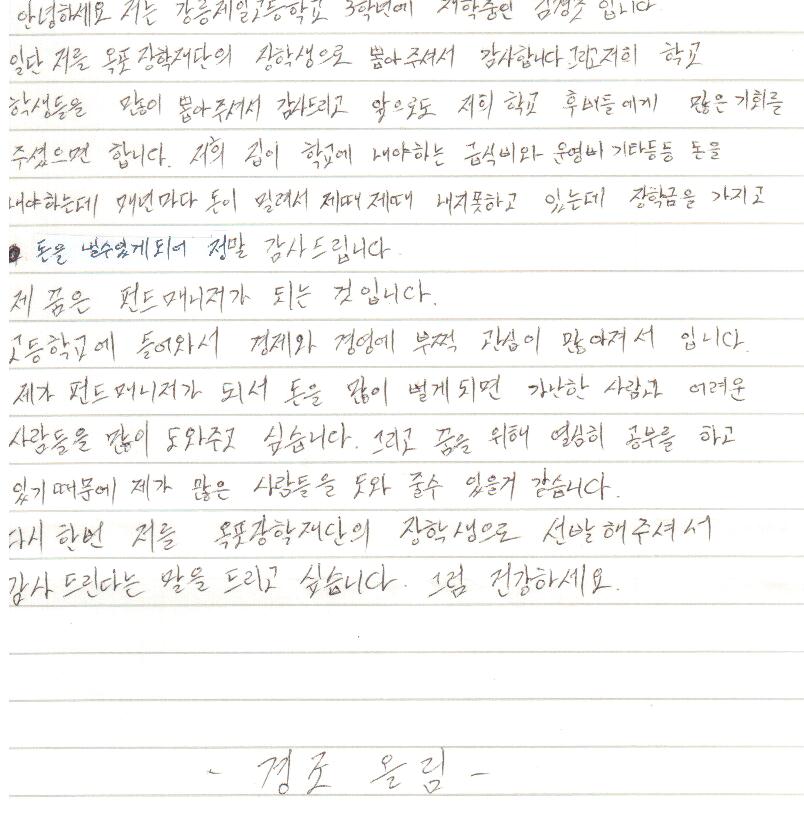 안녕하세요 저는 강릉제일고등학교 3학년에 재학중인 김경조 입니다
일단 저를 옥포장학재단의 장학생으로 뽑아주셔서 감사합니다 그리고 저희 학교
학생들을 많이 뽑아주셔서 감사드리고 앞으로도 저희 학교 후배들에게 많은 기회를
주셨으면 합니다. 저희 집이 학교에 내야하는 급식비와 운영비 기타등등 돈을
내야하는데 매년마다 돈이 밀려서 제때 제때 내지못하고 있는데 장학금을 가지고
돈을 낼수있게되어 정말 감사드립니다.
제 꿈은 펀드매니저가 되는 것입니다.
고등학교에 들어와서 경제와 경영에 부쩍 관심이 많아져서 입니다.
제가 펀드매니저가 되서 돈을 많이 벌게되면 가난한 사람과 어려운
사람들을 많이 도와주고 싶습니다. 그리고 꿈을 위해 열심히 공부를 하고
있기때문에 제가 많은 사람들을 도와 줄수 있을거 같습니다.
다시 한번 저를 옥포장학재단의 장학생으로 선발해주셔서
감사드린다는 말을 드리고 싶습니다. 그럼 건강하세요.
- 경조 올림 -